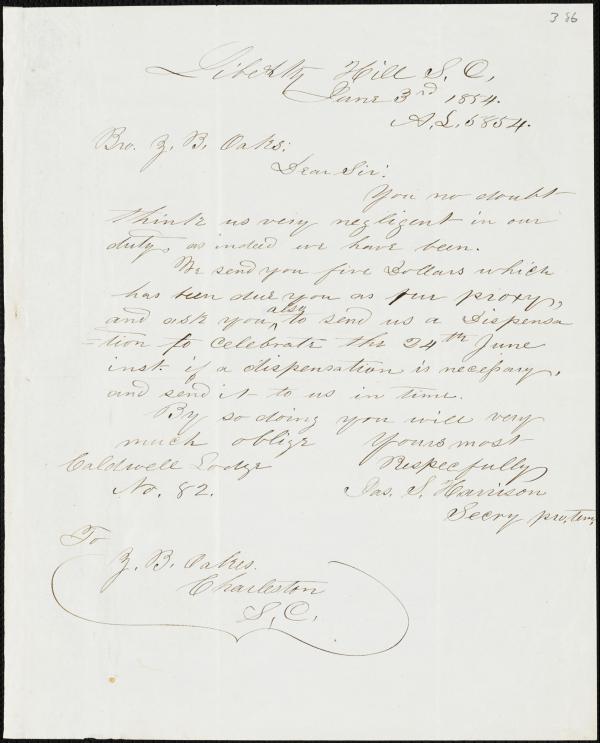 386
Liberty Hill S. C,
June 3rd 1854.
A. L. 5854.
Bro. Z. B. Oakes:
Dear Sir:
You no doubt
think us very negligent in our
duty, as indeed we have been.
We send you five Dollars which
has been due you as our proxy,
and ask you also to send us a Dispensa
=tion to celebrate the 24th June
inst. if a dispensation is necessary,
and send it to us in time.
By so doing you will very
much oblige Yours most
Caldwell Lodge Respecfully
No. 82. Jas. S. Harrison
Secry pro. tem,
To
Z. B. Oakes.
Charleston
S, C,